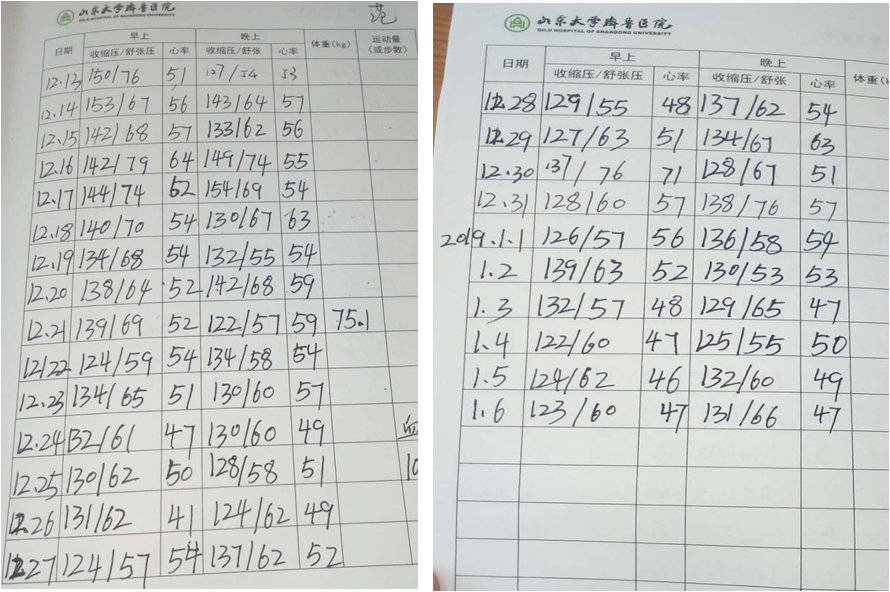 山东大学齐鲁医院
QILU HOSPITAL OF SHANDONG UNIVERSITY
范
日期 早上 晚上 体重(kg) 运动量(或步数)
收缩压/舒张压 心率 收缩压/舒张 心率
12.13 150/76 51 127/54 53
12.14 153/67 56 143/64 57
12.15 142/68 57 133/62 56
12.16 142/79 64 149/74 55
12.17 144/74 62 154/69 54
12.18 140/70 54 130/67 63
12.19 134/68 54 132/55 54
12.20 138/64 52 142/68 59
12.21 139/69 52 122/57 59 75.1
12/22 124/59 54 134/58 54
12.23 134/65 51 130/60 57
12.24 132/61 47 130/60 49
12.25 130/62 50 128/58 51
12.26 131/62 41 124/62 49
12.27 124/57 54 137/62 52
山东大学齐鲁医院
QILU HOSPITAL OF SHANDONG UNIVERSITY
日期 早上 晚上 体重(k
收缩压/舒张压 心率 收缩压/舒张 心率
12.28 129/55 48 137/62 54
12.29 127/63 51 134/67 63
12.30 137/76 71 128/67 51
12.31 128/60 57 138/76 57
2019.1.1 126/57 56 136/58 54
1.2 139/63 52 130/53 53
1.3 132/57 48 129/65 47
1.4 122/60 47 125/55 50
1.5 124/62 46 132/60 49
1.6 123/60 47 131/66 47